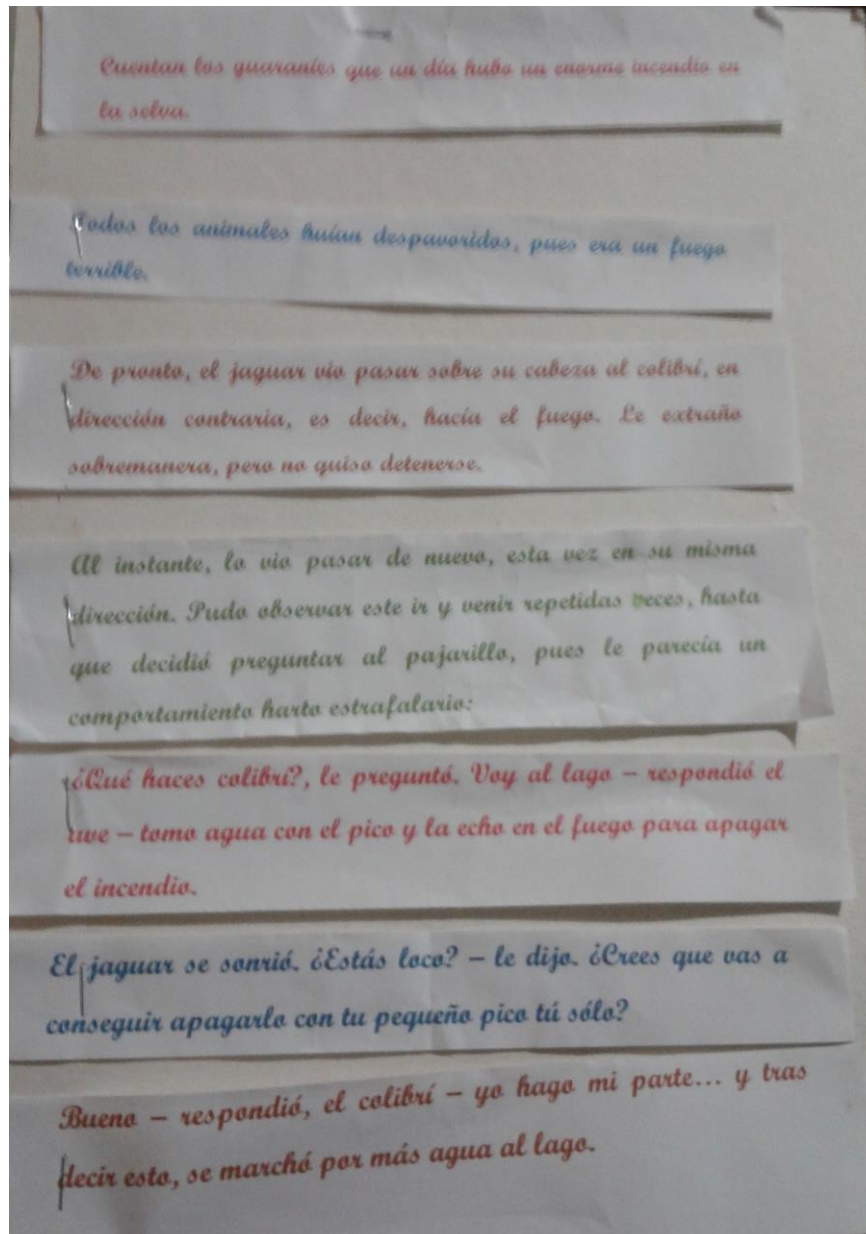 Cuentan los guaraníes que un día hubo un enorme incendio en
la selva.
Todos los animales huían despavoridos, pues era un fuego
terrible.
De pronto, el jaguar vio pasar sobre su cabeza al colibrí, en
dirección contraria, es decir, hacía el fuego. Le extraño
sobremanera, pero no quiso detenerse.
Al instante, lo vio pasar de nuevo, esta vez en su misma
dirección. Pudo observar este ir y venir repetidas veces, hasta
que decidió preguntar al pajarillo, pues le parecía un
comportamiento harto estrafalario:
¿Qué haces colibrí?, le preguntó. Voy al lago – respondió el
ave – tomo agua con el pico y la echo en el fuego para apagar
el incendio.
El jaguar se sonrió. ¿Estás loco? – le dijo. ¿Crees que vas a
conseguir apagarlo con tu pequeño pico tú sólo?
Bueno – respondió, el colibrí – yo hago mi parte... y tras
decir esto, se marchó por más agua al lago.